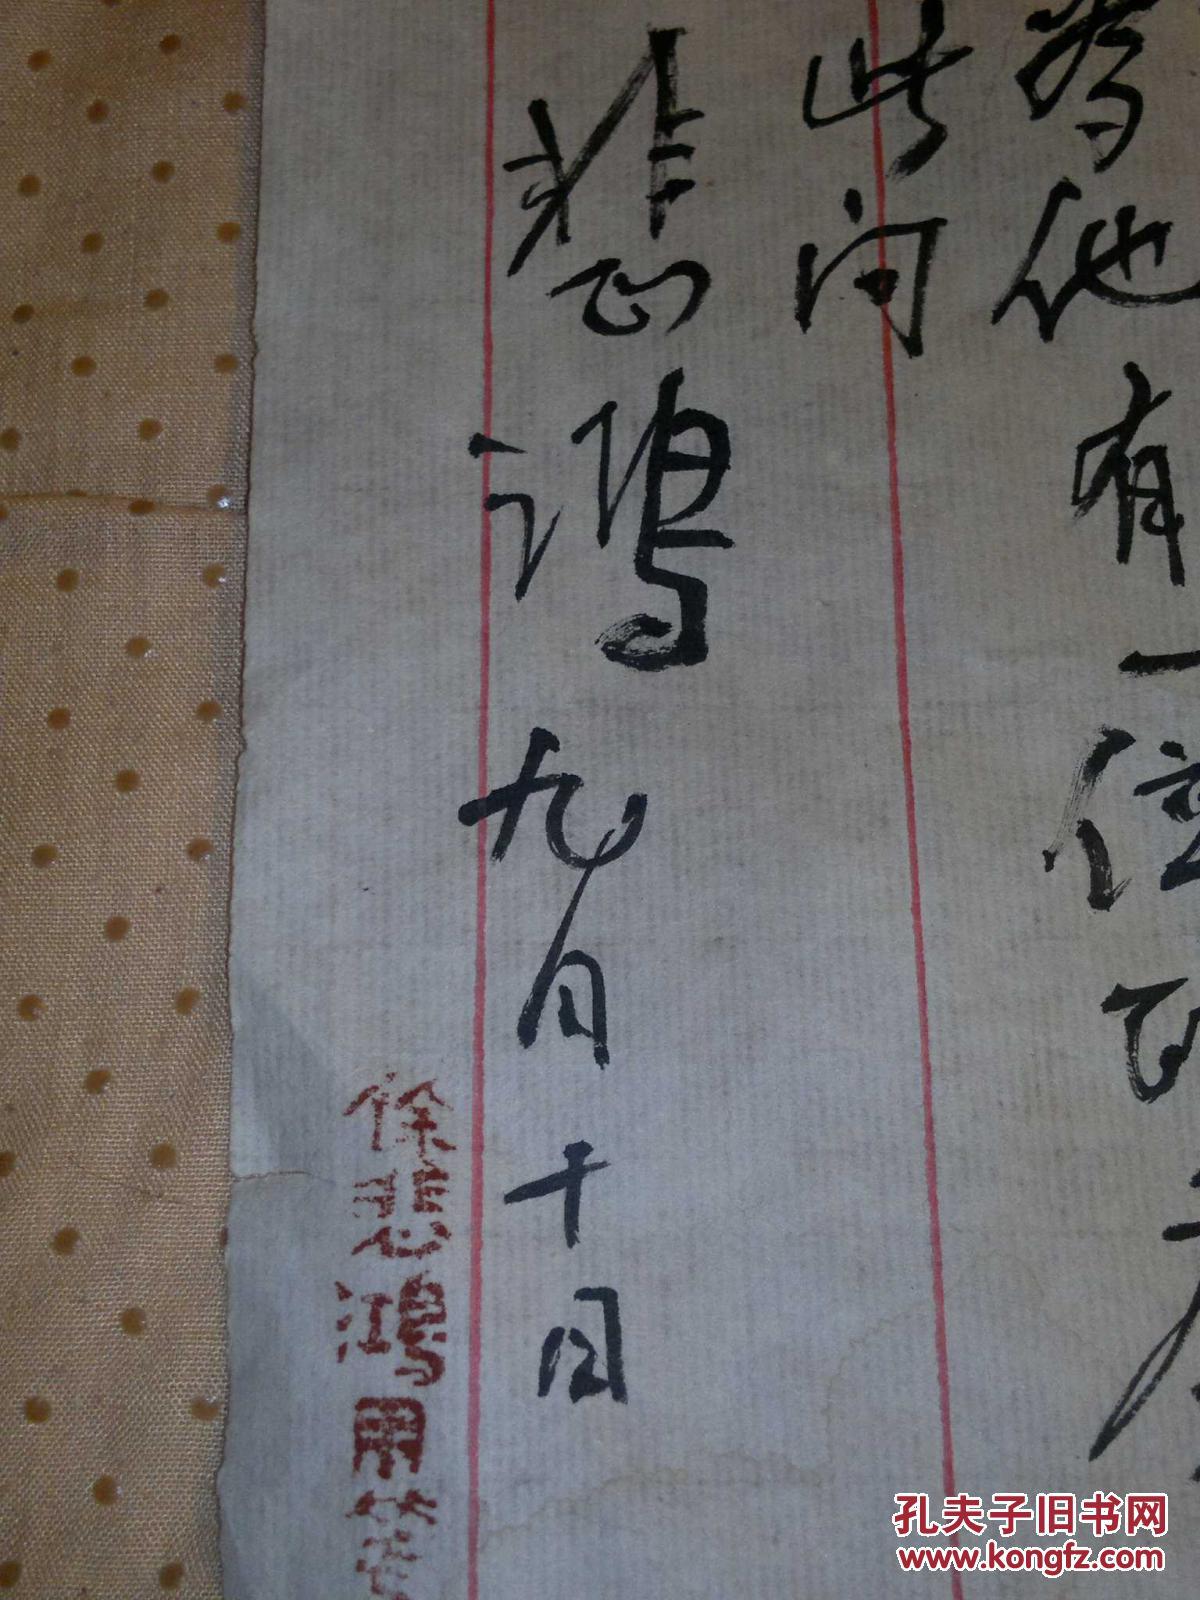 為他有一位
此问
悲鴻九月十日
徐悲鴻用箋
孔夫子旧书网
www.kongfz.com